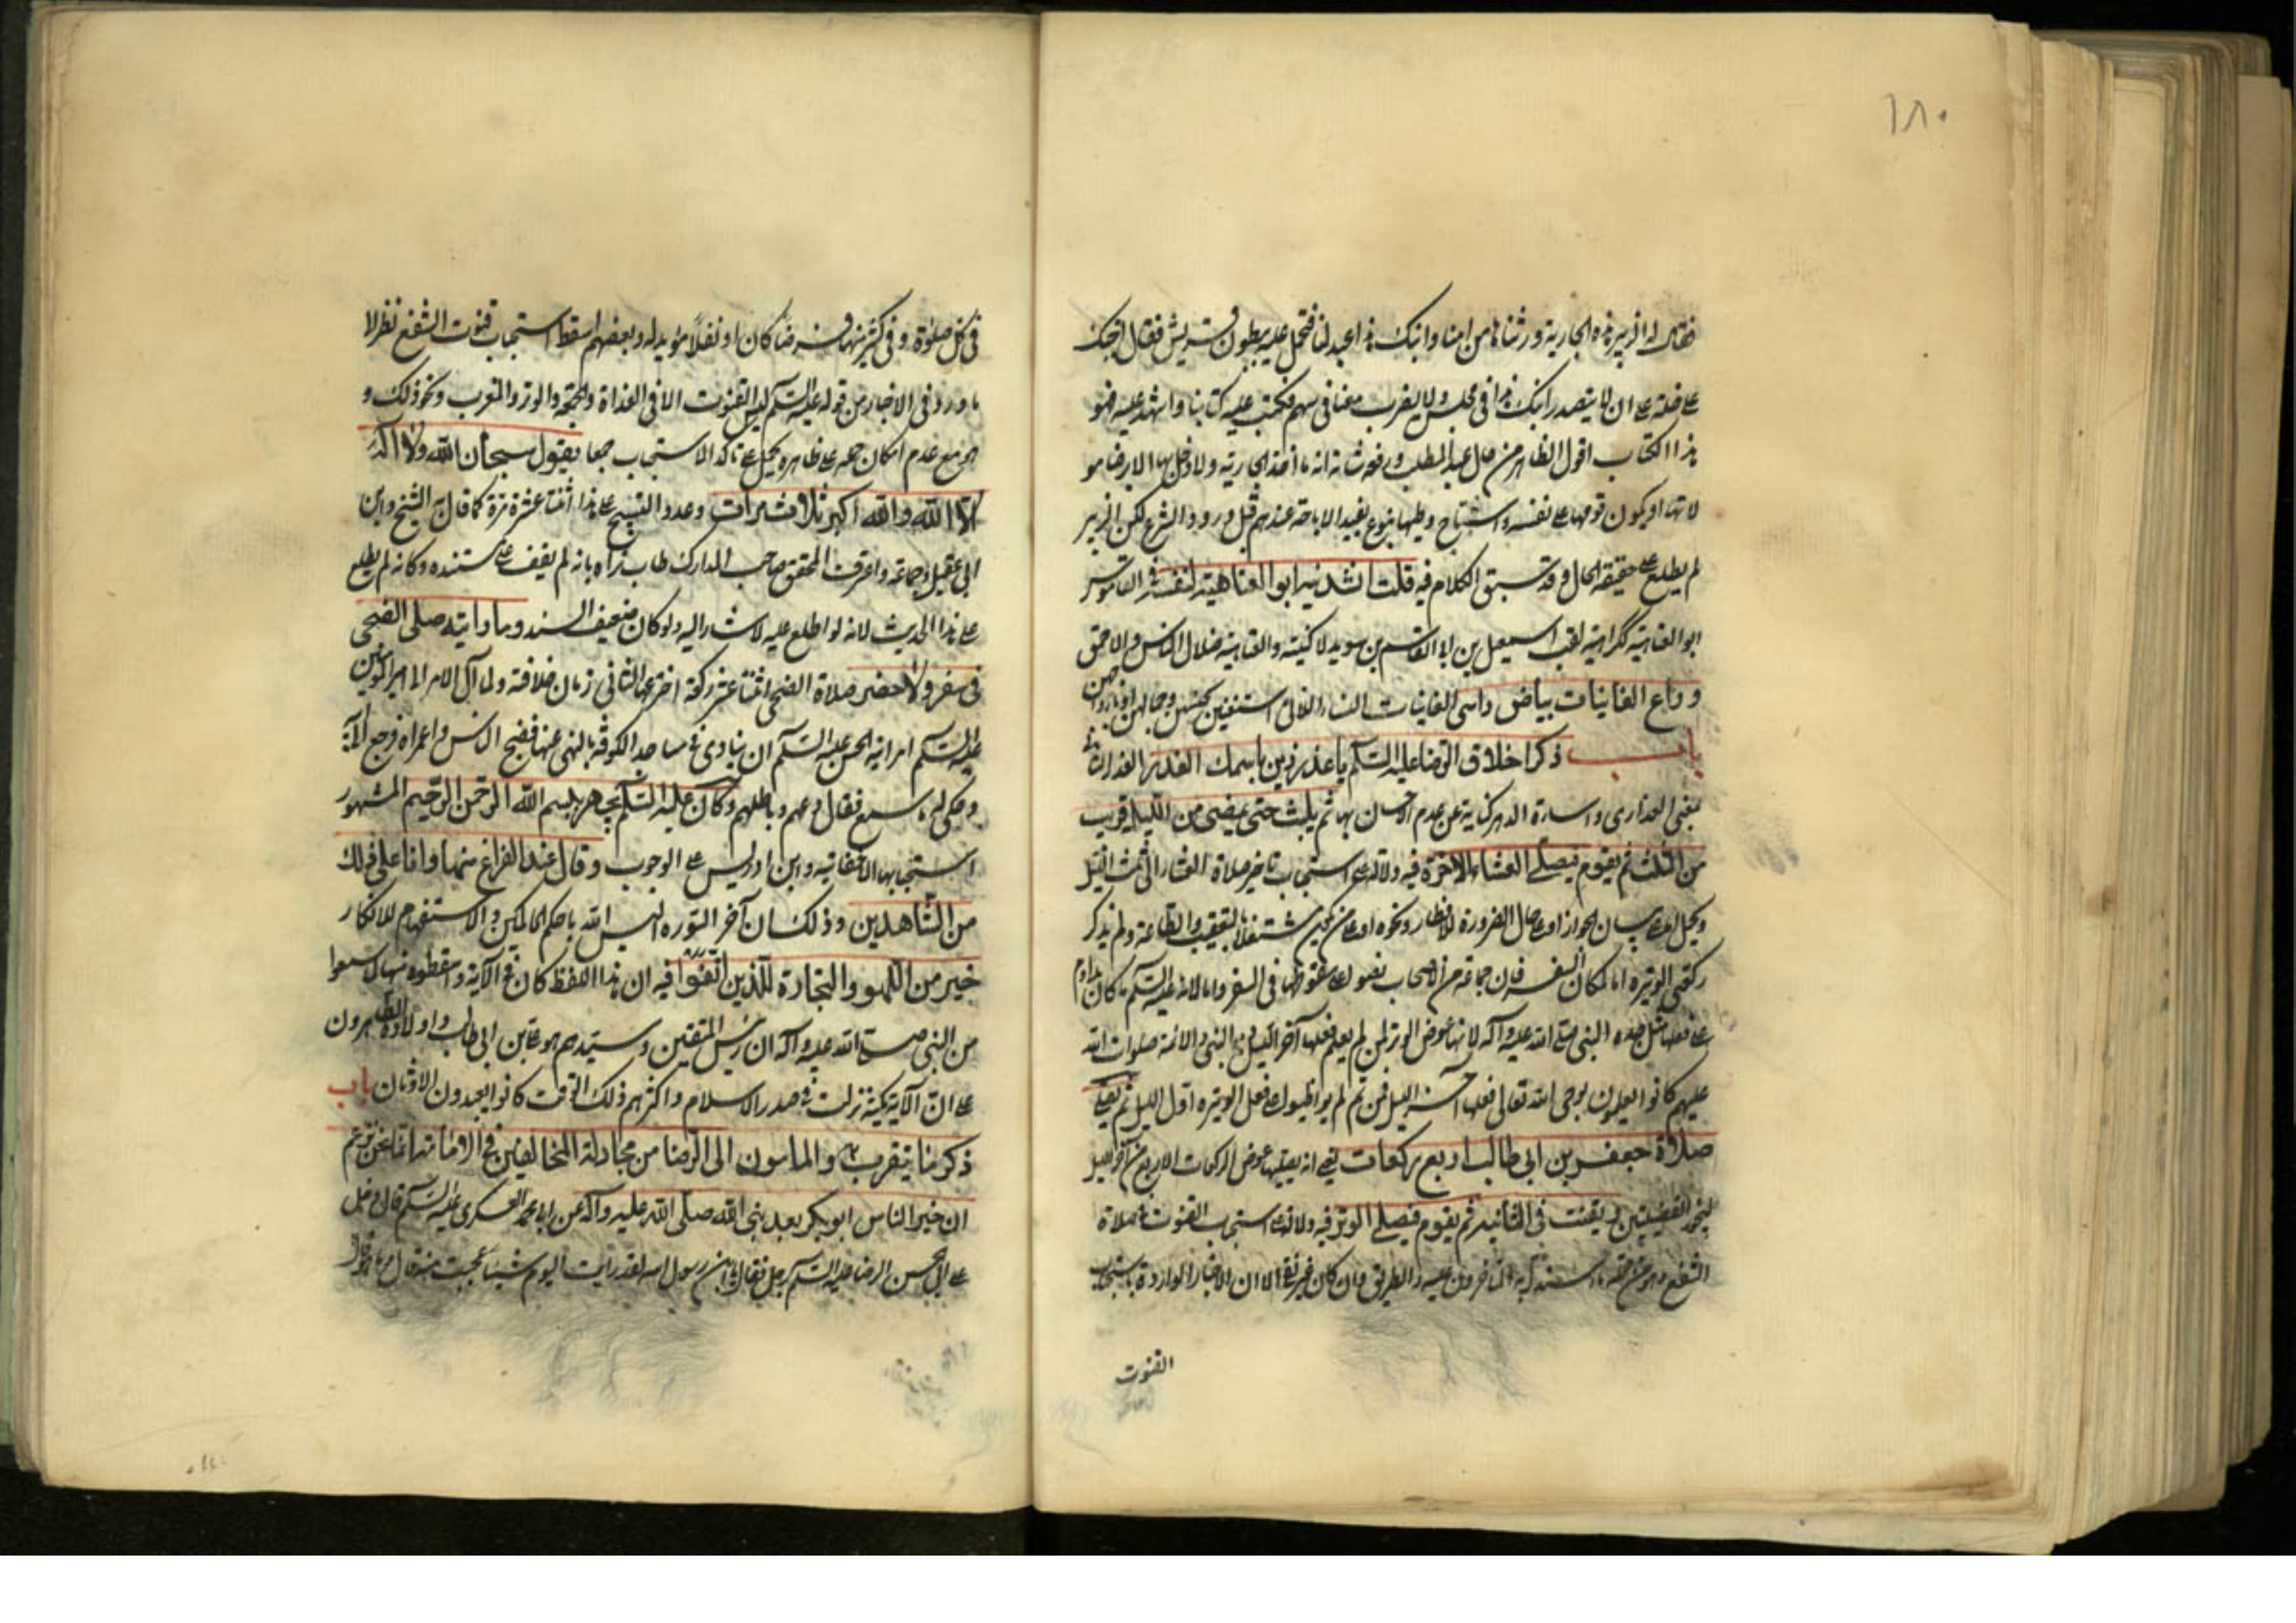 ١٨٠
فقال له الزبير هذه الجارية ورثناها من امنا وابنك هذا عبد لنا فتحمل عليه ببطون قريش فقال اجبك
على خلة على ان لا يتصدر ابنك هذا في مجلس ولا يضرب معنا في سهم فكتب عليه كتابا واشهد عليه فهو
هذا الكتاب اقول الظاهر من حال عبد المطلب ورفعة شانه انه ما اخذ الجارية ولا دخل بها الا برضا مو
لاتها او يكون قومها على نفسه واستباح وطيها بنوع يفيد الاباحة عندهم قبل ورود الشرع لكن الزبير
لم يطلع على حقيقة الحال وقد سبق الكلام فيه قلت انشدنيه ابو العتاهية لنفسه في القاموس
ابو العتاهية ككراهية لقب اسمعيل بن ابي القاسم بن سويد لا كنيته والعتاهية ضلال الناس والاحمق
وراع الغانيات بياض راسي الغانيات النساء اللاتي استغنين بحسنهن وجمالهن او بازواجهن
باب ذكر اخلاق الرضا عليه السلم يا عذر زين باسمك العذر
بمعنى العذارى و اسارة الدهر كناية عن عدم الاحسان بها ثم يلبث حتى يمضي من الليل قريب
من الثلث ثم يقوم فيصلي العشاء الاخرة فيه دلالة على استحباب تاخير صلاة العشاء الى ثلث الليل
ويحمل اما على بيان الجواز او على حال الضرورة للافطار ونحوه او على من يكون مشتغلا بالتعقيب والطاعة ولم يذكر
ركعتي الوتيرة اما لمكان السفر فان جماعة من الاصحاب نصوا على سقوطها في السفر واما لانه عليه السلم ما كان يداوم
على فعلها مثل جده النبي صلى الله عليه وآله لانها عوض الوتر لمن لم يعلم فعلها آخر الليل والنبي والائمة صلوات الله
عليهم كانوا يعلمون بوحى الله تعالى فعلها آخر الليل فمن ثم لم يواظبوا على فعل الوتيرة اول الليل ثم يصلي
صلاة جعفر بن ابي طالب اربع ركعات يعني انه يصليها عوض الركعات الاربع من آخر الليل
ليحوز الفضيلتين ويقنت في الثانية ثم يقوم فيصلي الوتر فيه دلالة على استحباب القنوت في صلاة
الشفع وان كان غير نقي الا ان الاخبار الواردة باستحباب
القنوت
في كل صلوة وفي كثير منها فرضا كان او نفلا مؤيد له وبعضهم اسقط استحباب قنوت الشفع نظرا لا
ما ورد في الاخبار من قوله عليه السلم ليس القنوت الا في الغداة والجمعة والوتر والمغرب ونحو ذلك و
هو مع عدم امكان حمله على ظاهره يحمل على تاكد الاستحباب جمعا يقول سبحان الله ولا اله
الا الله والله اكبر ثلاث مرات وعدد التسبيح على هذا اثنتا عشرة مرة كما قال به الشيخ وابن
ابي عقيل وجماعة واعترف المحقق صاحب المدارك طاب ثراه بانه لم يقف على مستنده وكانه لم يطلع
على هذا الحديث لانه لو اطلع عليه لاشار اليه ولو كان ضعيف السند وما رايته صلى الضحى
في سفر ولا حضر صلاة الضحى اثنتا عشر ركعة اخترعها الثاني زمان خلافته ولما آل الامر الى امير المؤمنين
عليه السلم امر ابنه الحسن عليه السلم ان ينادي في مساجد الكوفة بالنهى عنها فضج الناس واعمراه فرجع اليه
وحكى له ما سمع فقال دعهم وباطلهم وكان عليه السلم يجهر ببسم الله الرحمن الرحيم المشهور
استحبابها للاخفاتيه وابن ادريس على الوجوب وقال عند الفراغ منها وانا على ذلك
من الشاهدين وذلك ان آخر السورة اليس الله باحكم الحاكمين والاستفهام للانكار
خير من اللهو والتجارة للذين اتقوا فيه ان هذا اللفظ كان في الآية واسقطوه منها لما سمعوا
من النبي صلى الله عليه وآله ان رئيس المتقين وسيدهم هو علي بن ابي طالب واولاده الطاهرون
على ان الآية مكية نزلت في صدر الاسلام واكثرهم ذلك الوقت كانوا يعبدون الاوثان باب
ذكر ما يتقرب به المامون الى الرضا من مجادلة المخالفين في الامامة
ان خير الناس ابو بكر بعد نبي الله صلى الله عليه وآله عن ابي محمد العسكري عليه السلم قال دخل
على ابي الحسن الرضا عليه السلم رجل فقال يا ابن رسول الله لقد رايت اليوم شيئا عجبت منه قال وما هو قال